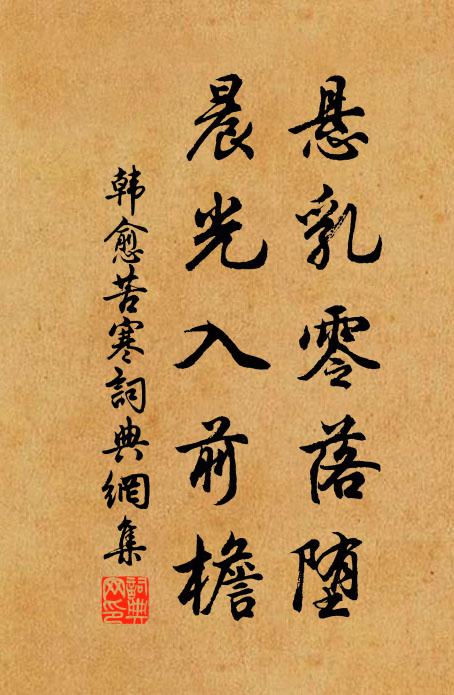 悬乳零落堕
晨光入前檐
韩愈苦寒詞典網集
詞典网印